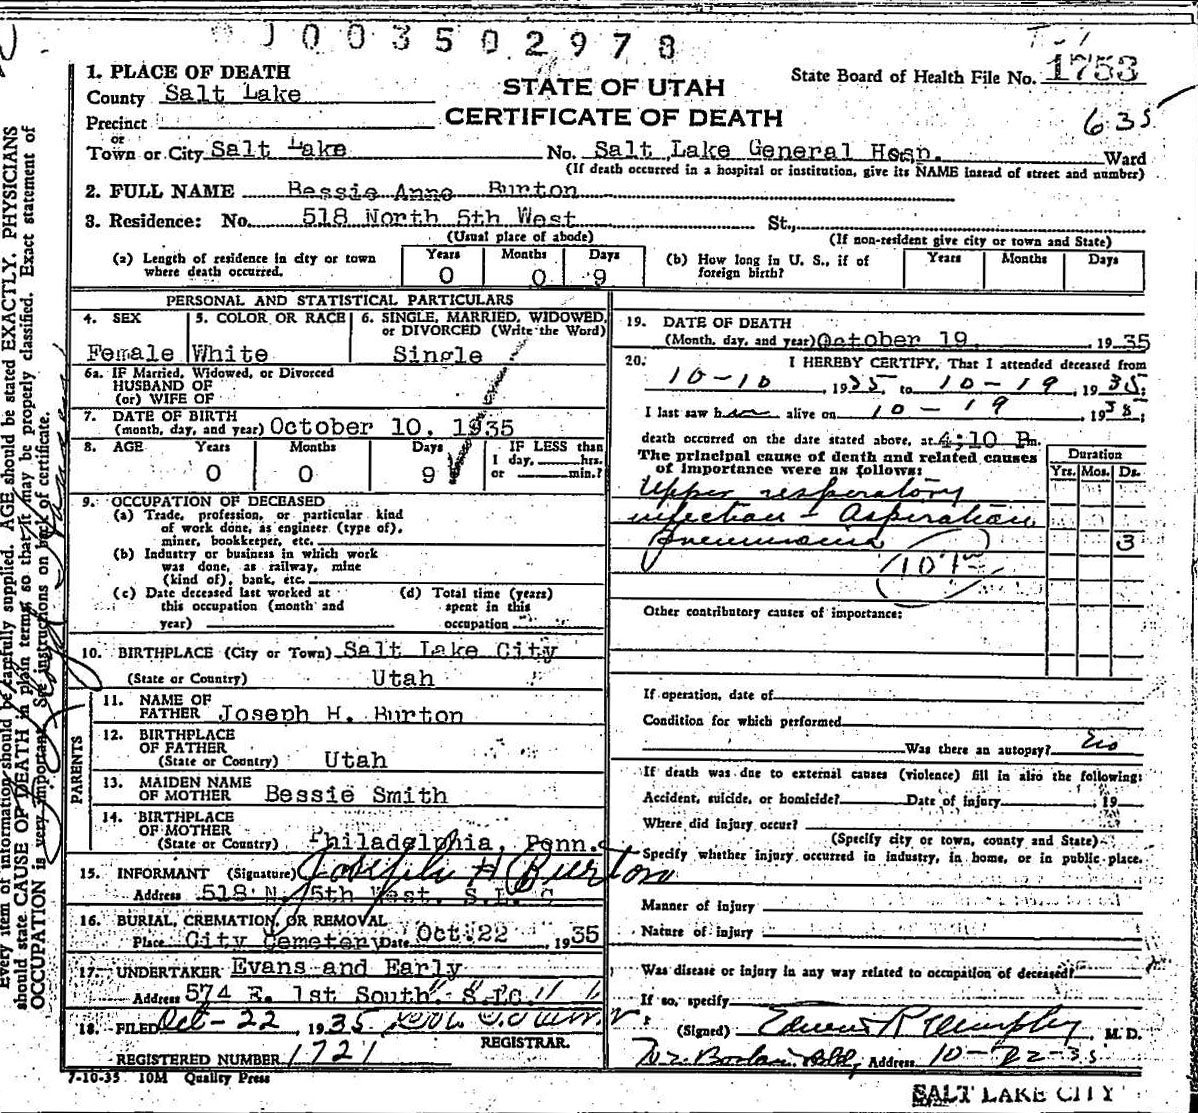 J003502978
1. PLACE OF DEATH
County Salt Lake
Precinct
or
Town or City Salt Lake
STATE OF UTAH
CERTIFICATE OF DEATH
State Board of Health File No. 1753
635
No. Salt Lake General Hosp. Ward
(If death occurred in a hospital or institution, give its NAME instead of street and number)
2. FULL NAME Bessie Anne Burton
3. Residence: No. 518 North 5th West St.,
(Usual place of abode)
(If non-resident give city or town and State)
(a) Length of residence in city or town where death occurred. Years 0 Months 0 Days 9
(b) How long in U. S., if of foreign birth? Years Months Days
PERSONAL AND STATISTICAL PARTICULARS
4. SEX Female
5. COLOR OR RACE White
6. SINGLE, MARRIED, WIDOWED, or DIVORCED (Write the Word) Single
6a. IF Married, Widowed, or Divorced
HUSBAND OF
(or) WIFE OF
7. DATE OF BIRTH
(month, day, and year) October 10, 1935
8. AGE Years 0 Months 0 Days 9 IF LESS than
1 day, hrs.
or min.?
9. OCCUPATION OF DECEASED
(a) Trade, profession, or particular kind
of work done, as engineer (type of),
miner, bookkeeper, etc.
(b) Industry or business in which work
was done, as railway, mine
(kind of), bank, etc.
(c) Date deceased last worked at
this occupation (month and
year)
(d) Total time (years)
spent in this
occupation
10. BIRTHPLACE (City or Town) Salt Lake City
(State or Country) Utah
PARENTS
11. NAME OF
FATHER Joseph H. Burton
12. BIRTHPLACE
OF FATHER
(State or Country) Utah
13. MAIDEN NAME
OF MOTHER Bessie Smith
14. BIRTHPLACE
OF MOTHER
(State or Country) Philadelphia, Penn.
15. INFORMANT (Signature) Joseph H Burton
Address 518 N. 5th West. S.L. C
16. BURIAL, CREMATION, OR REMOVAL
Place City Cemetery Date Oct. 22, 1935
17. UNDERTAKER Evans and Early
Address 574 E. 1st South. S.L.C.
18. FILED Oct-22, 1935
REGISTRAR.
REGISTERED NUMBER 1721
7-10-35 10M Quality Press
19. DATE OF DEATH
(Month, day, and year) October 19, 1935
20. I HEREBY CERTIFY, That I attended deceased from
10-10, 1935, to 10-19, 1935;
I last saw h alive on 10-19, 1935;
death occurred on the date stated above, at 4:10 Pm.
The principal cause of death and related causes
of importance were as follows:
Duration
Yrs. Mos. Ds.
Upper respiratory
infection - Aspiration
pneumonia 3
107
Other contributory causes of importance:
If operation, date of
Condition for which performed
Was there an autopsy? no
If death was due to external causes (violence) fill in also the following:
Accident, suicide, or homicide? Date of injury 19
Where did injury occur?
(Specify city or town, county and State)
Specify whether injury occurred in industry, in home, or in public place.
Manner of injury
Nature of injury
Was disease or injury in any way related to occupation of deceased?
If so, specify
(Signed) Edward R Murphy, M. D.
Address 10-22-35
SALT LAKE CITY
Every item of information should be carefully supplied. AGE should be stated EXACTLY. PHYSICIANS
should state CAUSE OF DEATH in plain terms, so that it may be properly classified. Exact statement of
OCCUPATION is very important. See instructions on back of certificate.